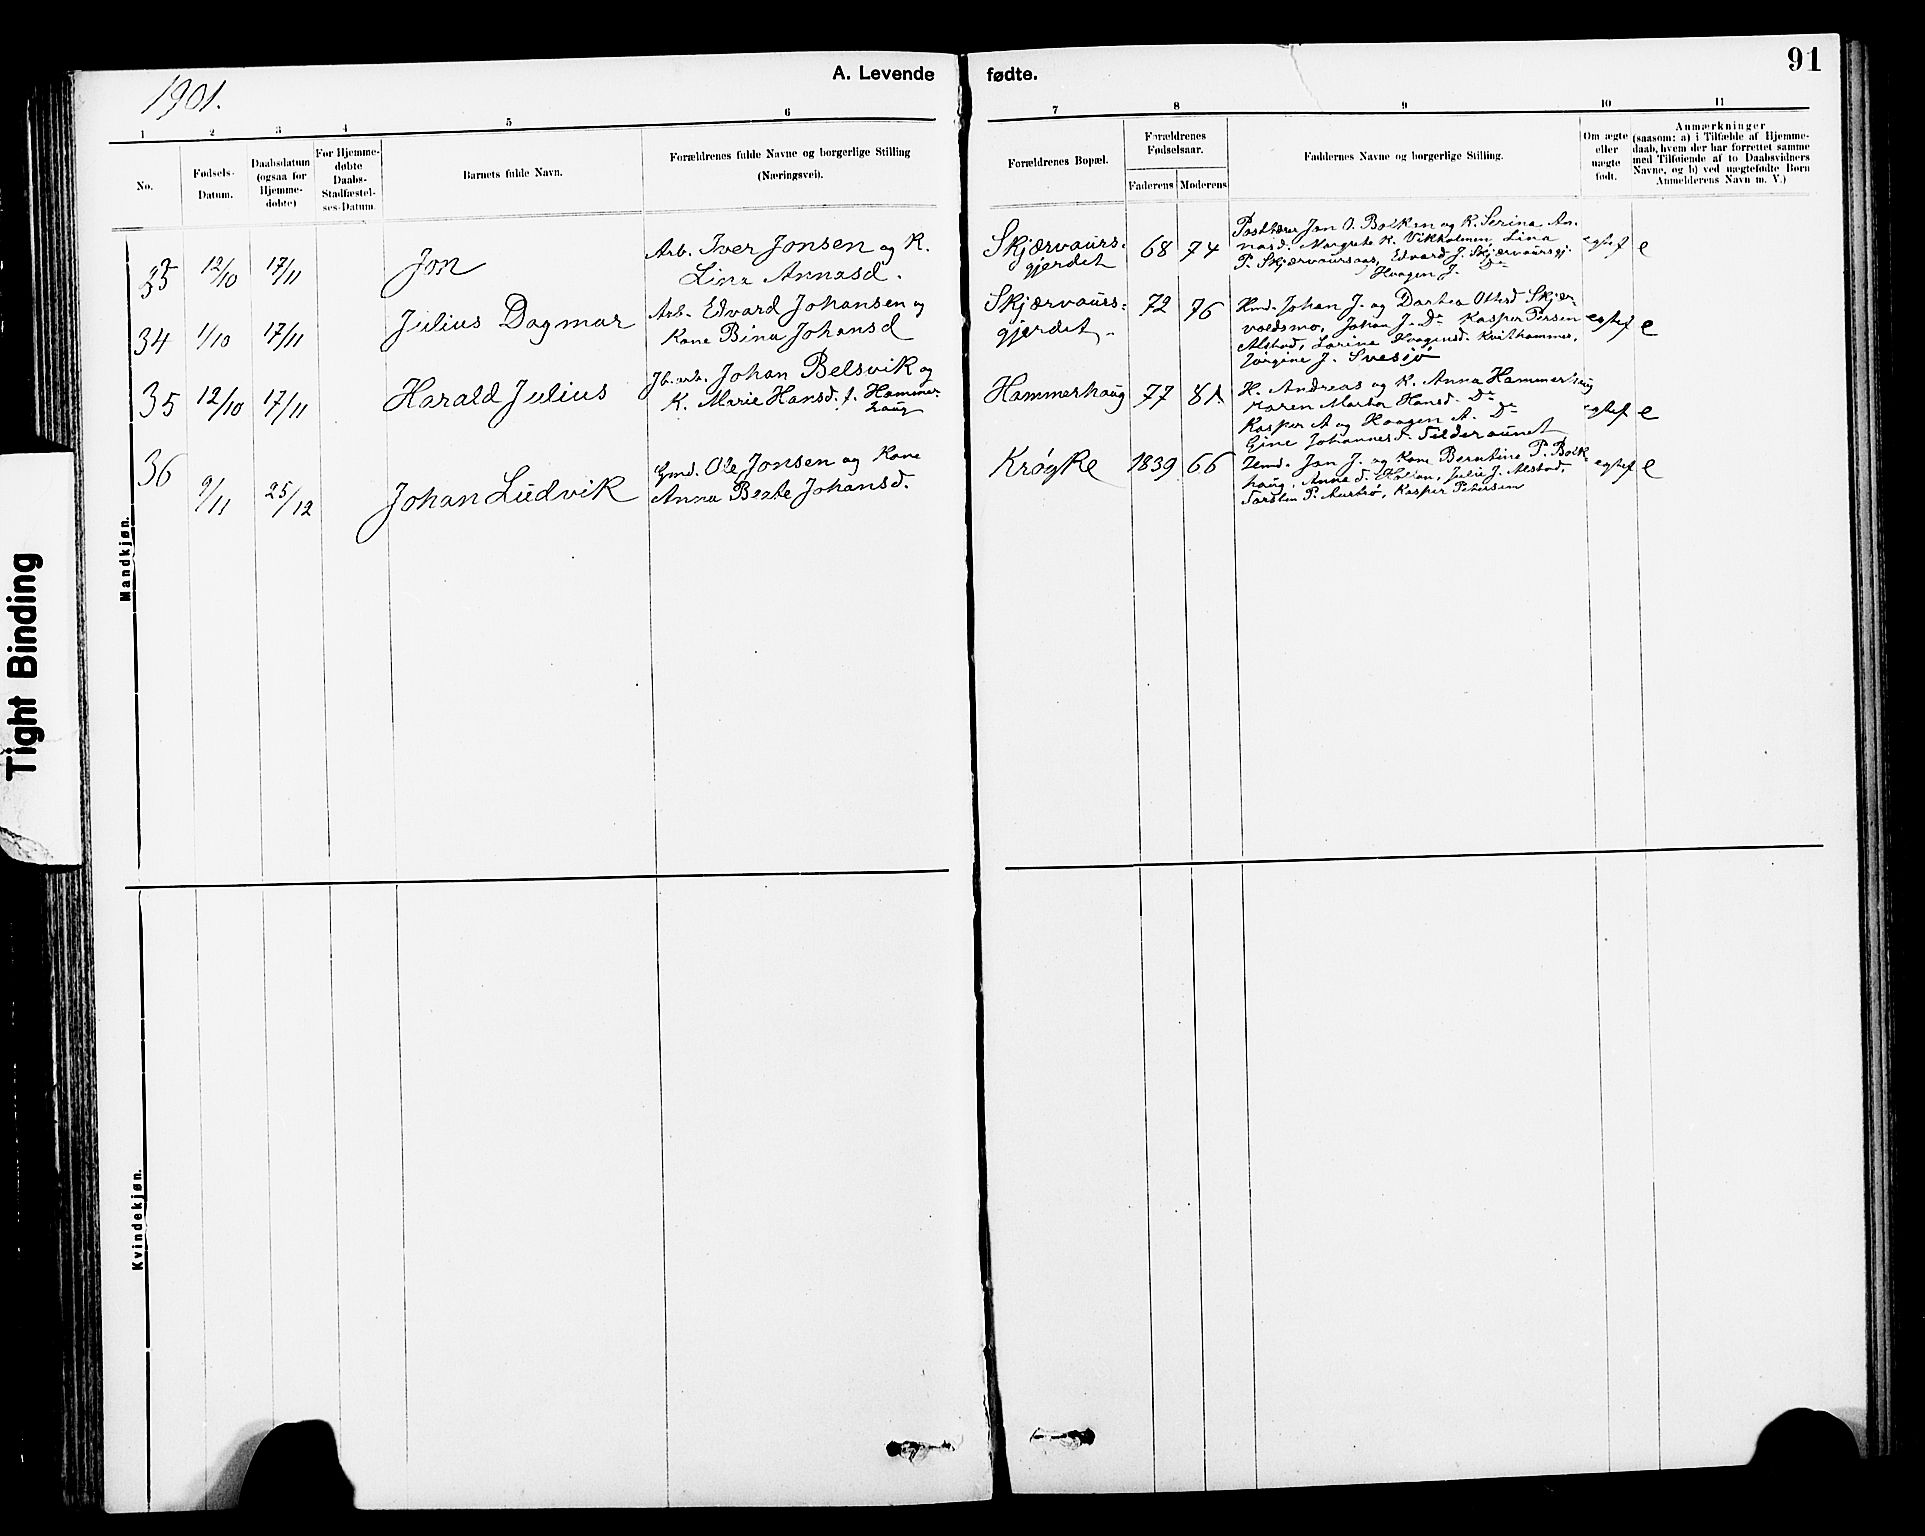 1901.
A. Levende fødte.
91
1 2 3 4 5 6 7 8 9 10 11
No.
Fødsels-
Datum.
Daabsdatum
(ogsaa for
Hjemme-
døbte)
For Hjemme-
døbte
Daabs-
Stadfæstel-
ses-Datum.
Barnets fulde Navn.
Forældrenes fulde Navne og borgerlige Stilling
(Næringsvei).
Forældrenes Bopæl.
Forældrenes
Fødselsaar.
Faderens Moderens
Faddernes Navne og borgerlige Stilling.
Om ægte
eller
uægte
født.
Anmærkninger
(saasom: a) i Tilfælde af Hjemme-
daab, hvem der har forrettet samme
med Tilføiende af to Daabsvidners
Navne, og b) ved uægtefødte Børn
Anmelderens Navn m. V.)
Mandkjøn.
12/10 17/11 Jon
Arb. Iver Jonsen og K.
Lina Arnasd.
Skjærvaurs-
gjerdet
68 74
Jon O. Bolkm og K. Serina Ar-
nasd. Margrete K. Vikholmen, Lina
P. Skjærvaursaas, Edvard J. Skjærvaursgj.
Haagen J. Do
egtef e
34 1/10 17/11 Julius Dagmar
Arb. Edvard Johansen og
Kone Bina Johansd
Skjærvaurs-
gjerdet
72 76
Kmd. Johan J. og Dortea Olsd Skjær-
voldsmo, Johan J. Do Kasper Persen
Alstad, Larina Haagensd. Kvithammer,
Jørgine J. Svesjø
egtef e
35 12/10 17/11 Harald Julius
Johan Belsvik og
K. Marie Hansd. f. Hammer-
haug
Hammerhaug
77 81
H. Andreas og K. Anna Hammerhaug
Maren Marta Hansd. Do
Kasper A og Haagen A. Do
Gine Johannesd. Tilderaunet
egtef e
36 9/11 25/12 Johan Ludvik
Gmd. Ole Jonsen og Kone
Anna Berte Johansd.
Krøgke
1839 66
Jon J. og Kone Berntine P. Bolk-
haug, Anne d. Holien, Julie J. Alstad,
Torsten P. Austrø, Kasper Petersen
egtef e
Kvindekjøn.
Tight Binding